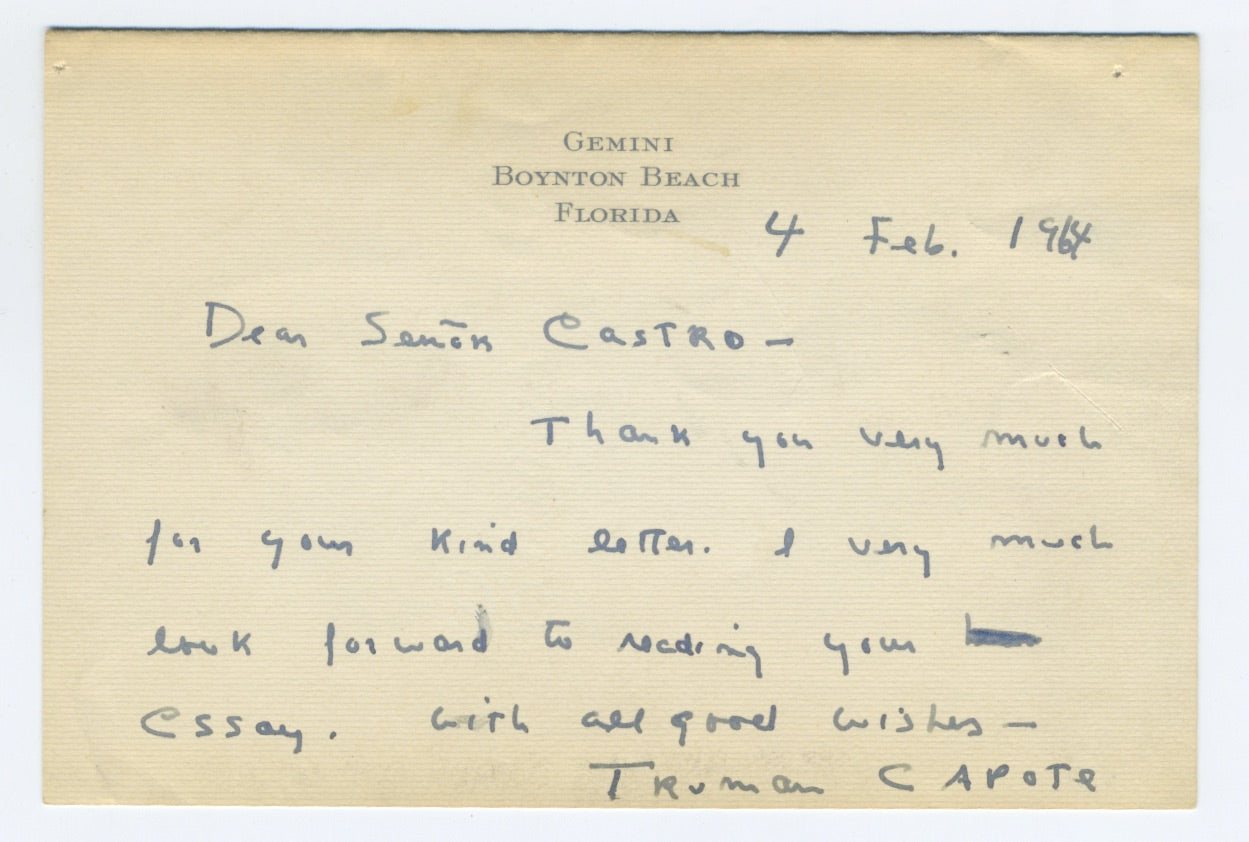 GEMINI
BOYNTON BEACH
FLORIDA
4 Feb. 1964
Dear Señor Castro —
Thank you very much
for your kind letter. I very much
look forward to reading your
essay. With all good wishes —
Truman Capote